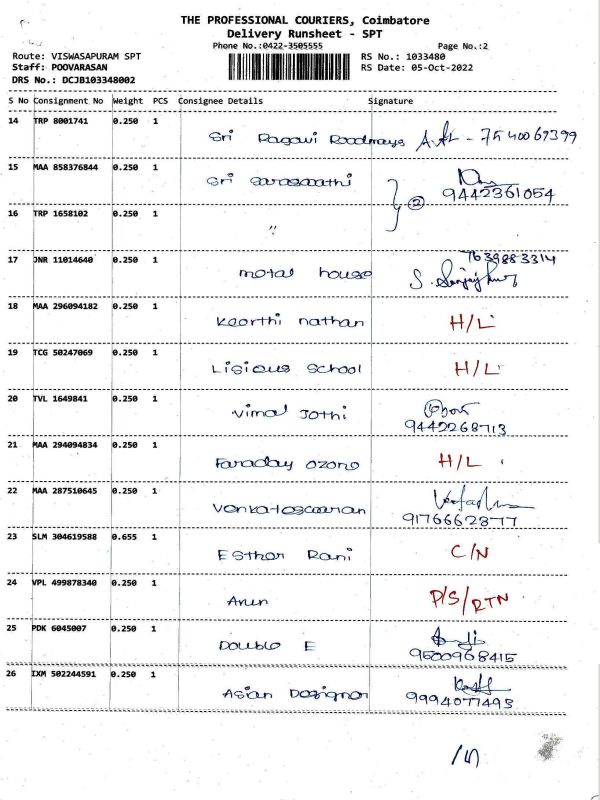 THE PROFESSIONAL COURIERS, Coimbatore
Delivery Runsheet - SPT
Phone No.:0422-3505555 Page No.:2
Route: VISWASAPURAM SPT RS No.: 1033480
Staff: POOVARASAN RS Date: 05-Oct-2022
DRS No.: DCJB103348002
S No Consignment No Weight PCS Consignee Details Signature
14 TRP 8001741 0.250 1
Sri Ragavi Roadways
15 MAA 858376844 0.250 1
Sri 9442361054
16 TRP 1658102 0.250 1
" 2
17 JNR 11014640 0.250 1 7639883314
motal house
18 MAA 296094182 0.250 1
Keerthi nathan H/L
19 TCG 50247069 0.250 1
Lisious School H/L
20 TVL 1649841 0.250 1
Vimal Jothi 9442268713
21 MAA 294094834 0.250 1
Faraday ozone H/L
22 MAA 287510645 0.250 1
Venkateswaran 9176662877
23 SLM 304619588 0.655 1
Esther Rani C/N
24 VPL 499878340 0.250 1
Arun P/S/RTN
25 PDK 6045007 0.250 1
Double E 9500968415
26 IXM 502244591 0.250 1
Asian Designer 9994077493